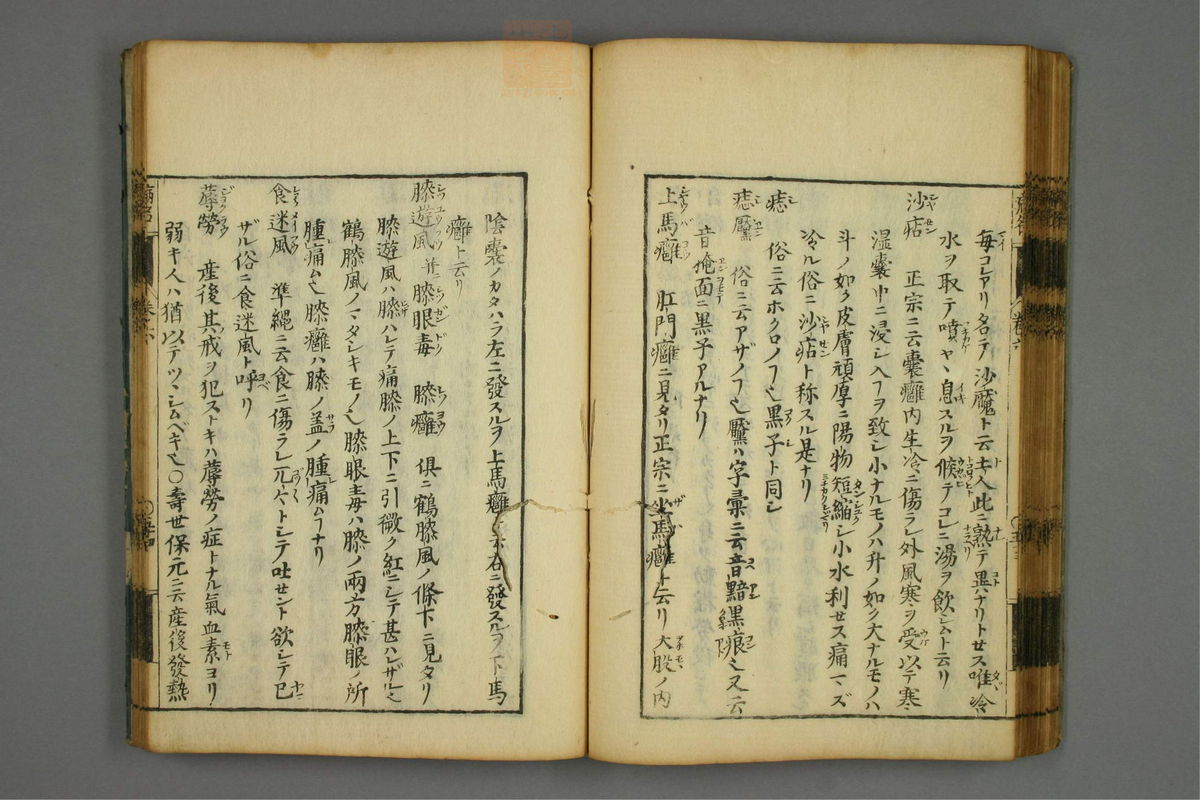 毎コレアリ名テ沙魘ト云土人此ニ熟テ異ナリトセス唯冷
水ヲ取テ噴ヤヽ息スルヲ候テコレニ湯ヲ飲シムト云リ
沙㾡 正宗ニ云囊癰内生冷ニ傷ラレ外風寒ヲ受以テ寒
湿囊中ニ浸シ入フヲ致シ小ナルモノハ升ノ如ク大ナルモノハ
斗ノ如ク皮膚頑厚ニ陽物短縮シ小水利セス痛マズ
冷ル俗ニ沙㾡ト称スル是ナリ
痣 俗ニ云ホクロノフ也黒子ト同シ
痣黶 俗ニ云アザノフ也黶ハ字彙ニ云音黯黒痕也又云
音掩面ニ黒子アルナリ
上馬癰 肛門癰ニ見タリ正宗ニ坐馬癰ト云リ大股ノ内
陰囊ノカタハラ左ニ發スルヲ上馬癰ト云右ニ發スルヲ下馬
癰ト云リ
膝遊風并ニ膝眼毒 膝癰 俱ニ鶴膝風ノ條下ニ見タリ
膝遊風ハ膝ハレテ痛膝ノ上下ニ引微ク紅ニシテ甚ハレザル也
鶴膝風ノマタシキモノ也膝眼毒ハ膝ノ兩方膝眼ノ所
腫痛ム也膝癰ハ膝ノ盖ノ腫痛ムフナリ
食迷風 準縄ニ云食ニ傷ラレ兀々トシテ吐セント欲シテ已
ザル俗ニ食迷風ト呼リ
蓐勞 産後其戒ヲ犯ストキハ蓐勞ノ症トナル氣血素ヨリ
弱キ人ハ猶以テツヽシムベキ也○壽世保元ニ云産後發熱